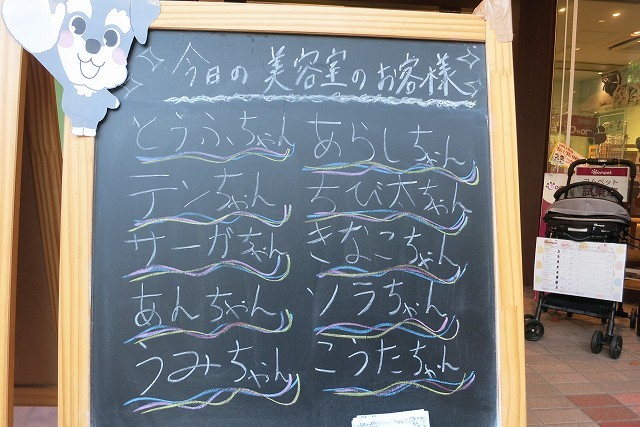 今日の美容室のお客様
とうふちゃん
テンちゃん
サーガちゃん
あんちゃん
うみちゃん
あらしちゃん
ちび太ちゃん
きなこちゃん
ソラちゃん
こうたちゃん
コムペット